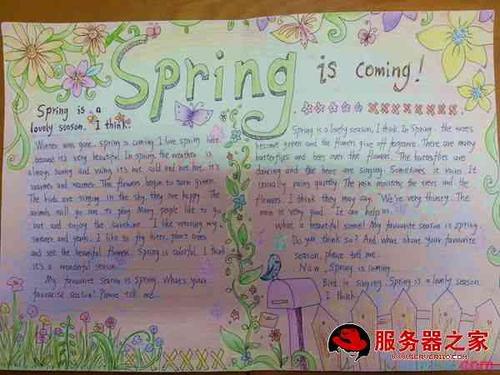 Spring is coming!
Spring is a
lovely season, I think.
Winter was gone, spring is coming. I love spring
because it's very beautiful. In spring, the weather is
always sunny and
warmer and warmer. The flowers begin to turn green.
The birds are singing in the sky, they are happy. The
animals will go out to play. Many people like to go
out and enjoy the sunshine. I like
sweater and
and see the beautiful flowers. Spring is colorful. I think
it's a wonderful season.
My favourite season is spring. What's your
favourite season? Please tell me...
Spring is a lovely season, I think. In Spring, the trees
become green and the flowers give off fragrance. There are many
butterflies and bees over the flowers. The butterflies are
dancing and the bees are singing. Sometimes, it rains. It
usually rains quietly. The rain moistens the trees and the
flowers. I think they may say, "We're very thirsty. The
rain is very good. It can help us.
What a beautiful scene! My favourite season is spring.
Do you think so? And what about your favourite
season, please tell me.
Now, Spring is coming.
Bird is singing. Spring is a lovely season.
I think.
服务器之家